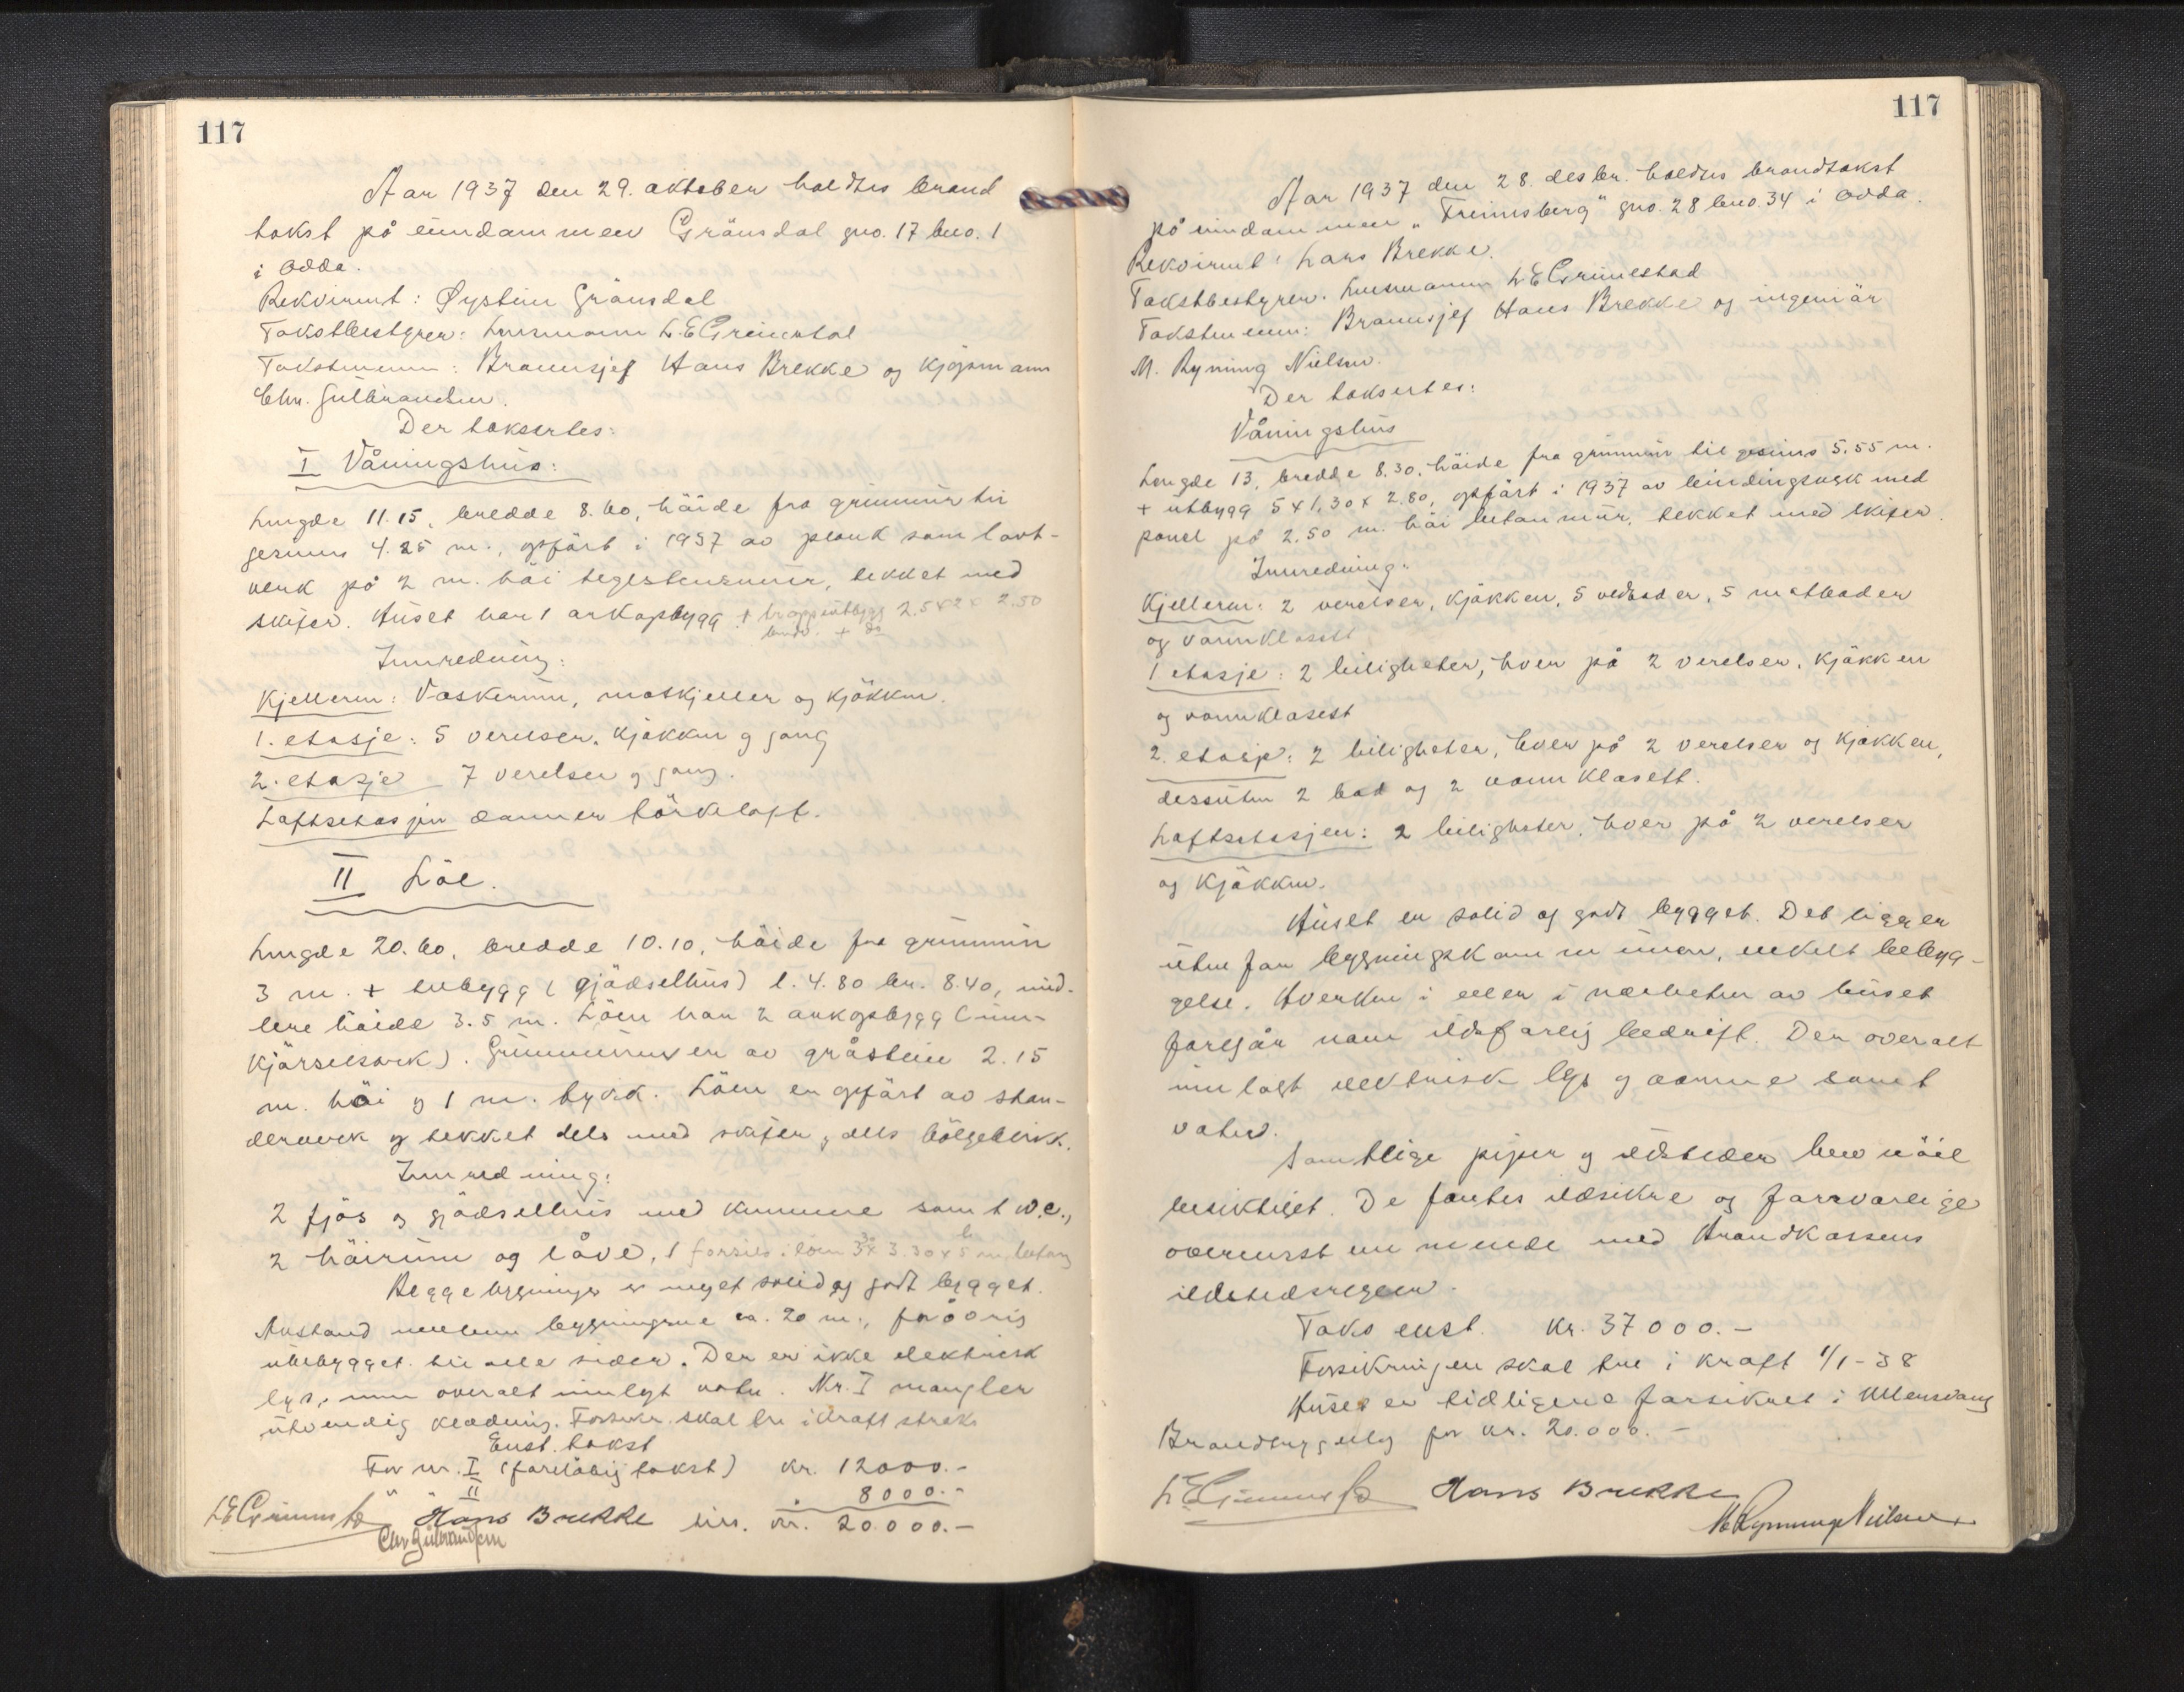 117
Aar 1937 den 29. oktober holdtes brand
takst på eiendommen Grönsdal gno. 17 bno. 1
i Odda.
Rekvirent: Øystein Grönsdal
Takstbestyrer: Lensmann L. E. Grimestad
Takstmenn: Brannsjef Hans Brekke og Kjöpmann
Chr. Gulbrandsen.
Der taksertes:
I Våningshus:
Lengde 11.15, bredde 8.60, höide fra grunnmur til
gesims 4.25 m., opfört i 1937 av plank som lavt-
verk på 2 m. höi tegelstensmur, tekket med
skifer. Huset har 1 arkopbygg + trappeutbygg 2.5 x 2 x 2.50
Innredning:
Kjelleren: Vaskerum, matkjeller og kjökken.
1. etasje: 5 verelser, kjökken og gang
2. etasje 7 verelser og gang.
Loftsetasjen danner törkeloft.
II Löe.
Lengde 20.60, bredde 10.10, höide fra grunnmur
3 m. + tilbygg (gjödselhus) l. 4.80 br. 8.40, mid-
lere höide 3.5 m. Löen har 2 arkopbygg (inn-
kjörselsark). Grunnmuren er av gråstein 2.15
m. höi og 1 m. tykk. Löen er opfört av stan-
derverk og tekket dels med skifer, dels bölgeblikk.
Innredning:
2 fjös og gjödselhus med kumme samt w.c.,
2 höirum og låve, 1 forsilo i löen 3 x 3.30 x 5 m. betong
Begge bygninger er meget solid og godt bygget.
Avstand mellem bygningene ca. 20 m., forövrig
ubebygget til alle sider. Der er ikke elektrisk
lys, men overalt innlagt vatn. Nr. I mangler
utvendig kledning. Forsikr. skal tre i kraft straks
Enst. takst
For nr. I (foreløbig takst) kr. 12000.-
" " II " 8000.-
L E Grimestad Hans Brekke tils. kr. 20.000.-
Chr Gulbrandsen
117
Aar 1937 den 28. desbr. holdtes brandtakst
på eiendommen "Freimsberg" gno. 28 bno. 34 i Odda.
Rekvirent: Lars Brekke.
Takstbestyrer: Lensmann L E Grimestad
Takstmenn: Brannsjef Hans Brekke og ingeniör
M. Ryning Nielsen.
Der taksertes:
Våningshus
Lengde 13, bredde 8.30, höide fra grunnmur til gesims 5.55 m.
+ utbygg 5 x 1.30 x 2.80, opfört i 1937 av bindingsverk med
panel på 2.50 m. höi betonmur, tekket med skifer.
Innredning:
Kjelleren: 2 verelser, kjökken, 5 vedboder, 5 matboder
og vannklosett
1 etasje: 2 leiligheter, hver på 2 verelser, kjökken
og vannklosett
2. etasje: 2 leiligheter, hver på 2 verelser og kjökken,
dessuten 2 bad og 2 vannklosett.
Loftsetasjen: 2 leiligheter, hver på 2 verelser
og kjökken.
Huset er solid og godt bygget. Det ligger
utenfor bygningskommunen, enkelt bebyg-
gelse. Hverken i eller i nærheten av huset
foregår noen ildsfarlig bedrift. Der overalt
innlagt elektrisk lys og varme samt
vatn.
Samtlige piper og ildsteder blev nöie
besiktiget. De fantes ildsikre og forsvarlige
overensstemmende med Brandkassens
ildstedsregler.
Takst enst. kr. 37000.-
Forsikringen skal tre i kraft 1/1-38
Huset er tidligere forsikret i Ullensvang
Brandtrygdelag for kr. 20.000.-
L E Grimestad Hans Brekke
M Ryning Nielsen